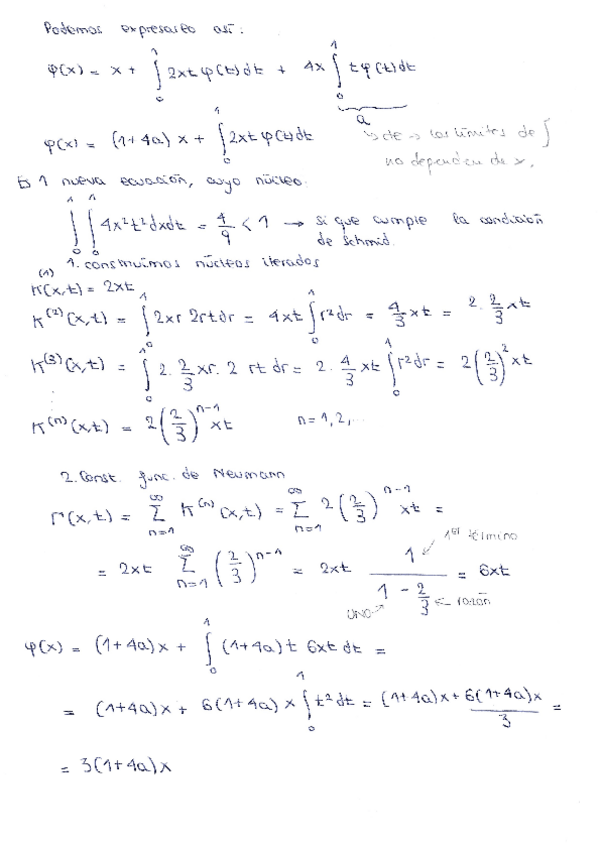 Podemos expresarlo así:
φ(x) = x + ∫₀¹ 2xt φ(t)dt + 4x ∫₀¹ tφ(t)dt
a
φ(x) = (1+4a) x + ∫₀¹ 2xt φ(t)dt ↘ cte → los límites de ∫
no dependen de x.
↳ 1 nueva ecuación, cuyo núcleo:
∫₀¹ ∫₀¹ 4x²t²dxdt = 4/9 < 1 → sí que cumple la condición
de Schmid.
1. construimos núcleos iterados
K⁽¹⁾(x,t) = 2xt
K⁽²⁾(x,t) = ∫₀¹ 2xr 2rt dr = 4xt ∫₀¹ r² dr = 4/3 xt = 2· 2/3 xt
K⁽³⁾(x,t) = ∫₀¹ 2· 2/3 xr· 2 rt dr = 2· 4/3 xt ∫₀¹ r² dr = 2(2/3)² xt
⋮
K⁽ⁿ⁾(x,t) = 2(2/3)ⁿ⁻¹ xt n = 1,2,...
2. Const. func. de Neumann
Γ(x,t) = Σₙ₌₁^∞ K⁽ⁿ⁾(x,t) = Σₙ₌₁^∞ 2(2/3)ⁿ⁻¹ xt =
1er término
= 2xt Σₙ₌₁^∞ (2/3)ⁿ⁻¹ = 2xt 1/(1 - 2/3) = 6xt
UNO → ← razón
φ(x) = (1+4a)x + ∫₀¹ (1+4a) t 6xt dt =
= (1+4a)x + 6(1+4a) x ∫₀¹ t² dt = (1+4a)x + 6(1+4a)x/3 =
= 3(1+4a)x